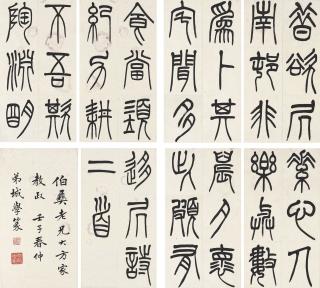 昔欲凥
南邨非
爲卜其
宅聞多
素心人
樂與數
晨夕懷
此頗有
食當須
紀力耕
不吾欺
陶淵明
移凥詩
二首
伯彝老兄大方家
教政 壬子春仲
弟城學篆